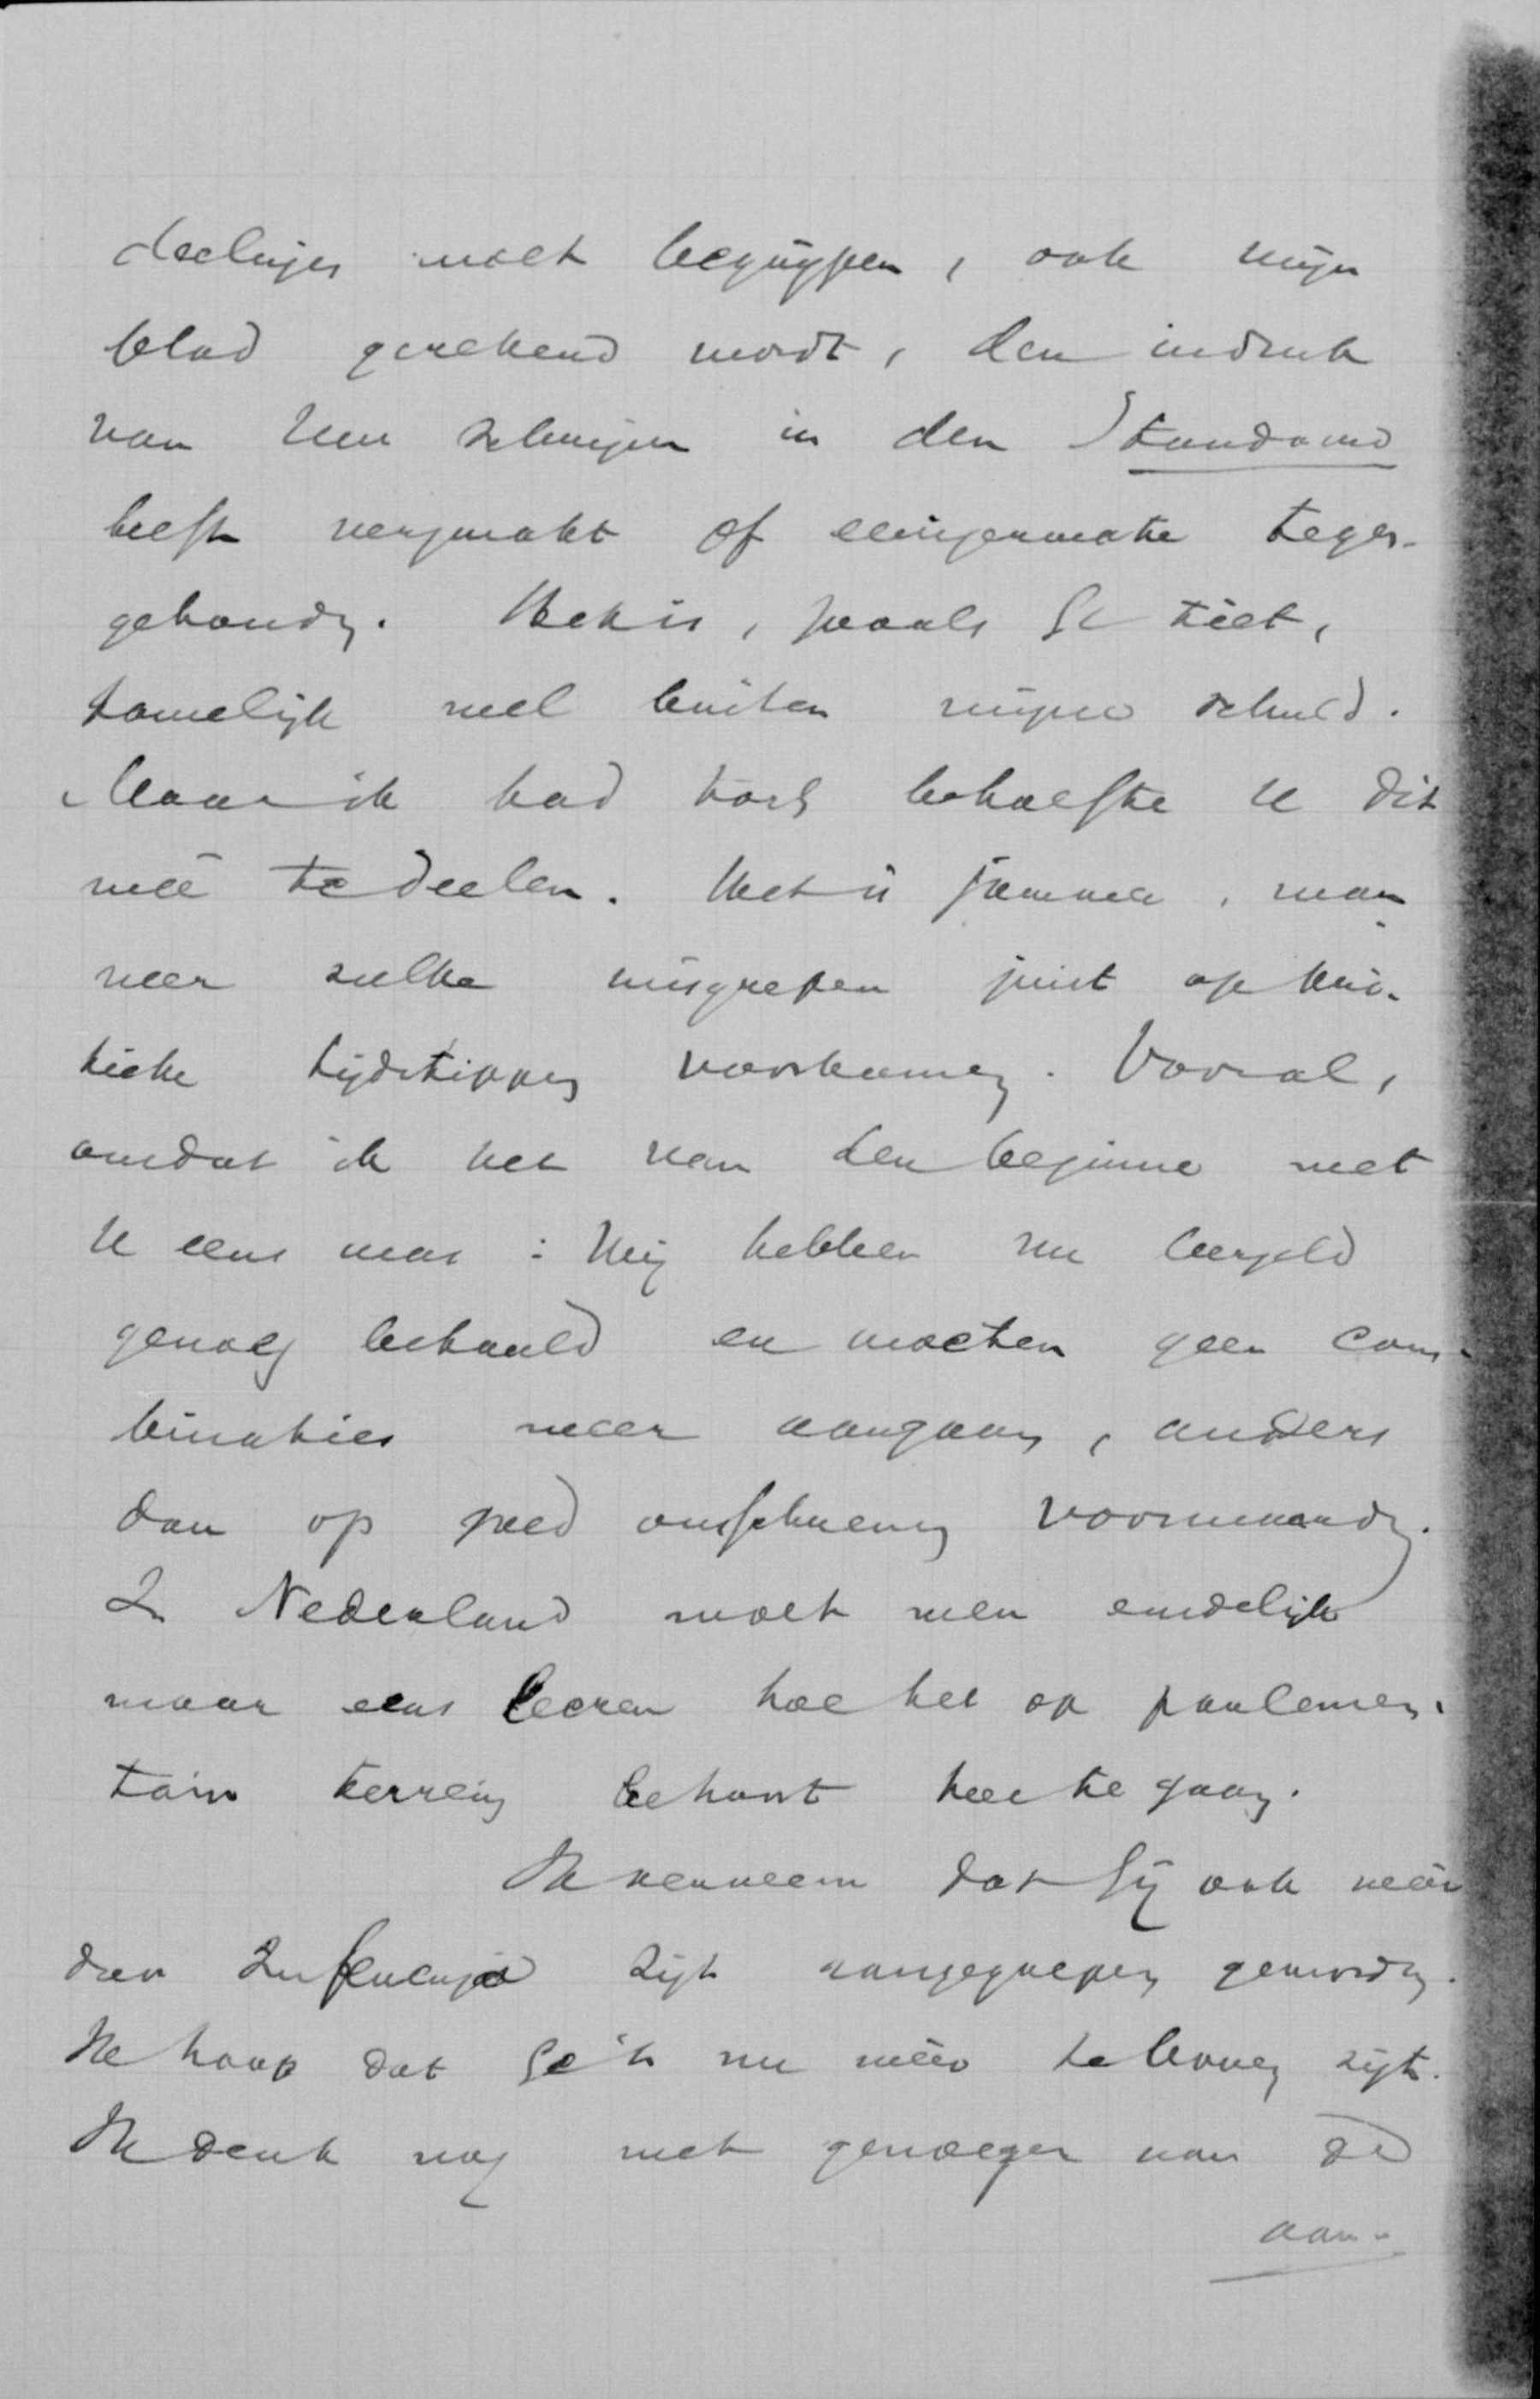 deelinges moet begrijpen, ook mijn
blad gerekend wordt, den indruk
van Uw schrijven in den Standaard
heeft verzwakt of eenigermate tegen-
gehouden. Het is, zooals Ge ziet,
tamelijk wel buiten mijne schuld.
Maar ik had toch behoefte U dit
meê te deelen. Het is jammer, wan-
neer zulke misgrepen juist op kri-
tieke tijdstippen voorkomen. Vooral,
omdat ik het van den beginne met
U eens was: Wij hebben nu leergeld
genoeg betaald en moeten geen com-
binaties meer aangaan, anders
dan op goed omschreven voorwaarden.
In Nederland moet men eindelijk
maar eens leeren hoe het op parlemen-
tair terrein behoort toe te gaan.
Ik verneem dat Gij ook weêr
door Influenza zijt aangegrepen geworden.
Ik hoop dat Ge 't nu weêr te boven zijt.
Ik denk nog met genoegen aan de
aan-